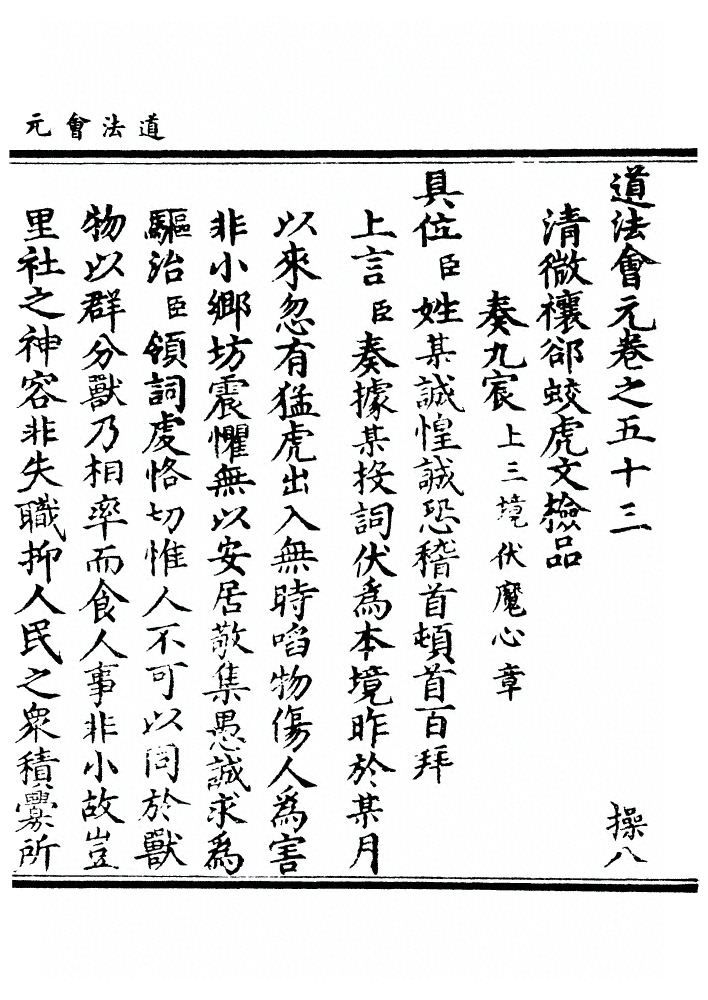 道法會元
道法會元卷之五十三
操八
清微禳郤蛟虎文檢品
奏九宸上三境伏魔心章
具位臣姓某誠惶誠恐稽首頓首百拜
上言臣奏據某投詞伏為本境昨於某月
以來忽有猛虎出入無時啗物傷人為害
非小鄉坊震懼無以安居敬集愚誠求為
驅治臣領詞虔恪切惟人不可以同於獸
物以群分獸乃相率而食人事非小故豈
里社之神容非失職抑人民之衆積釁所